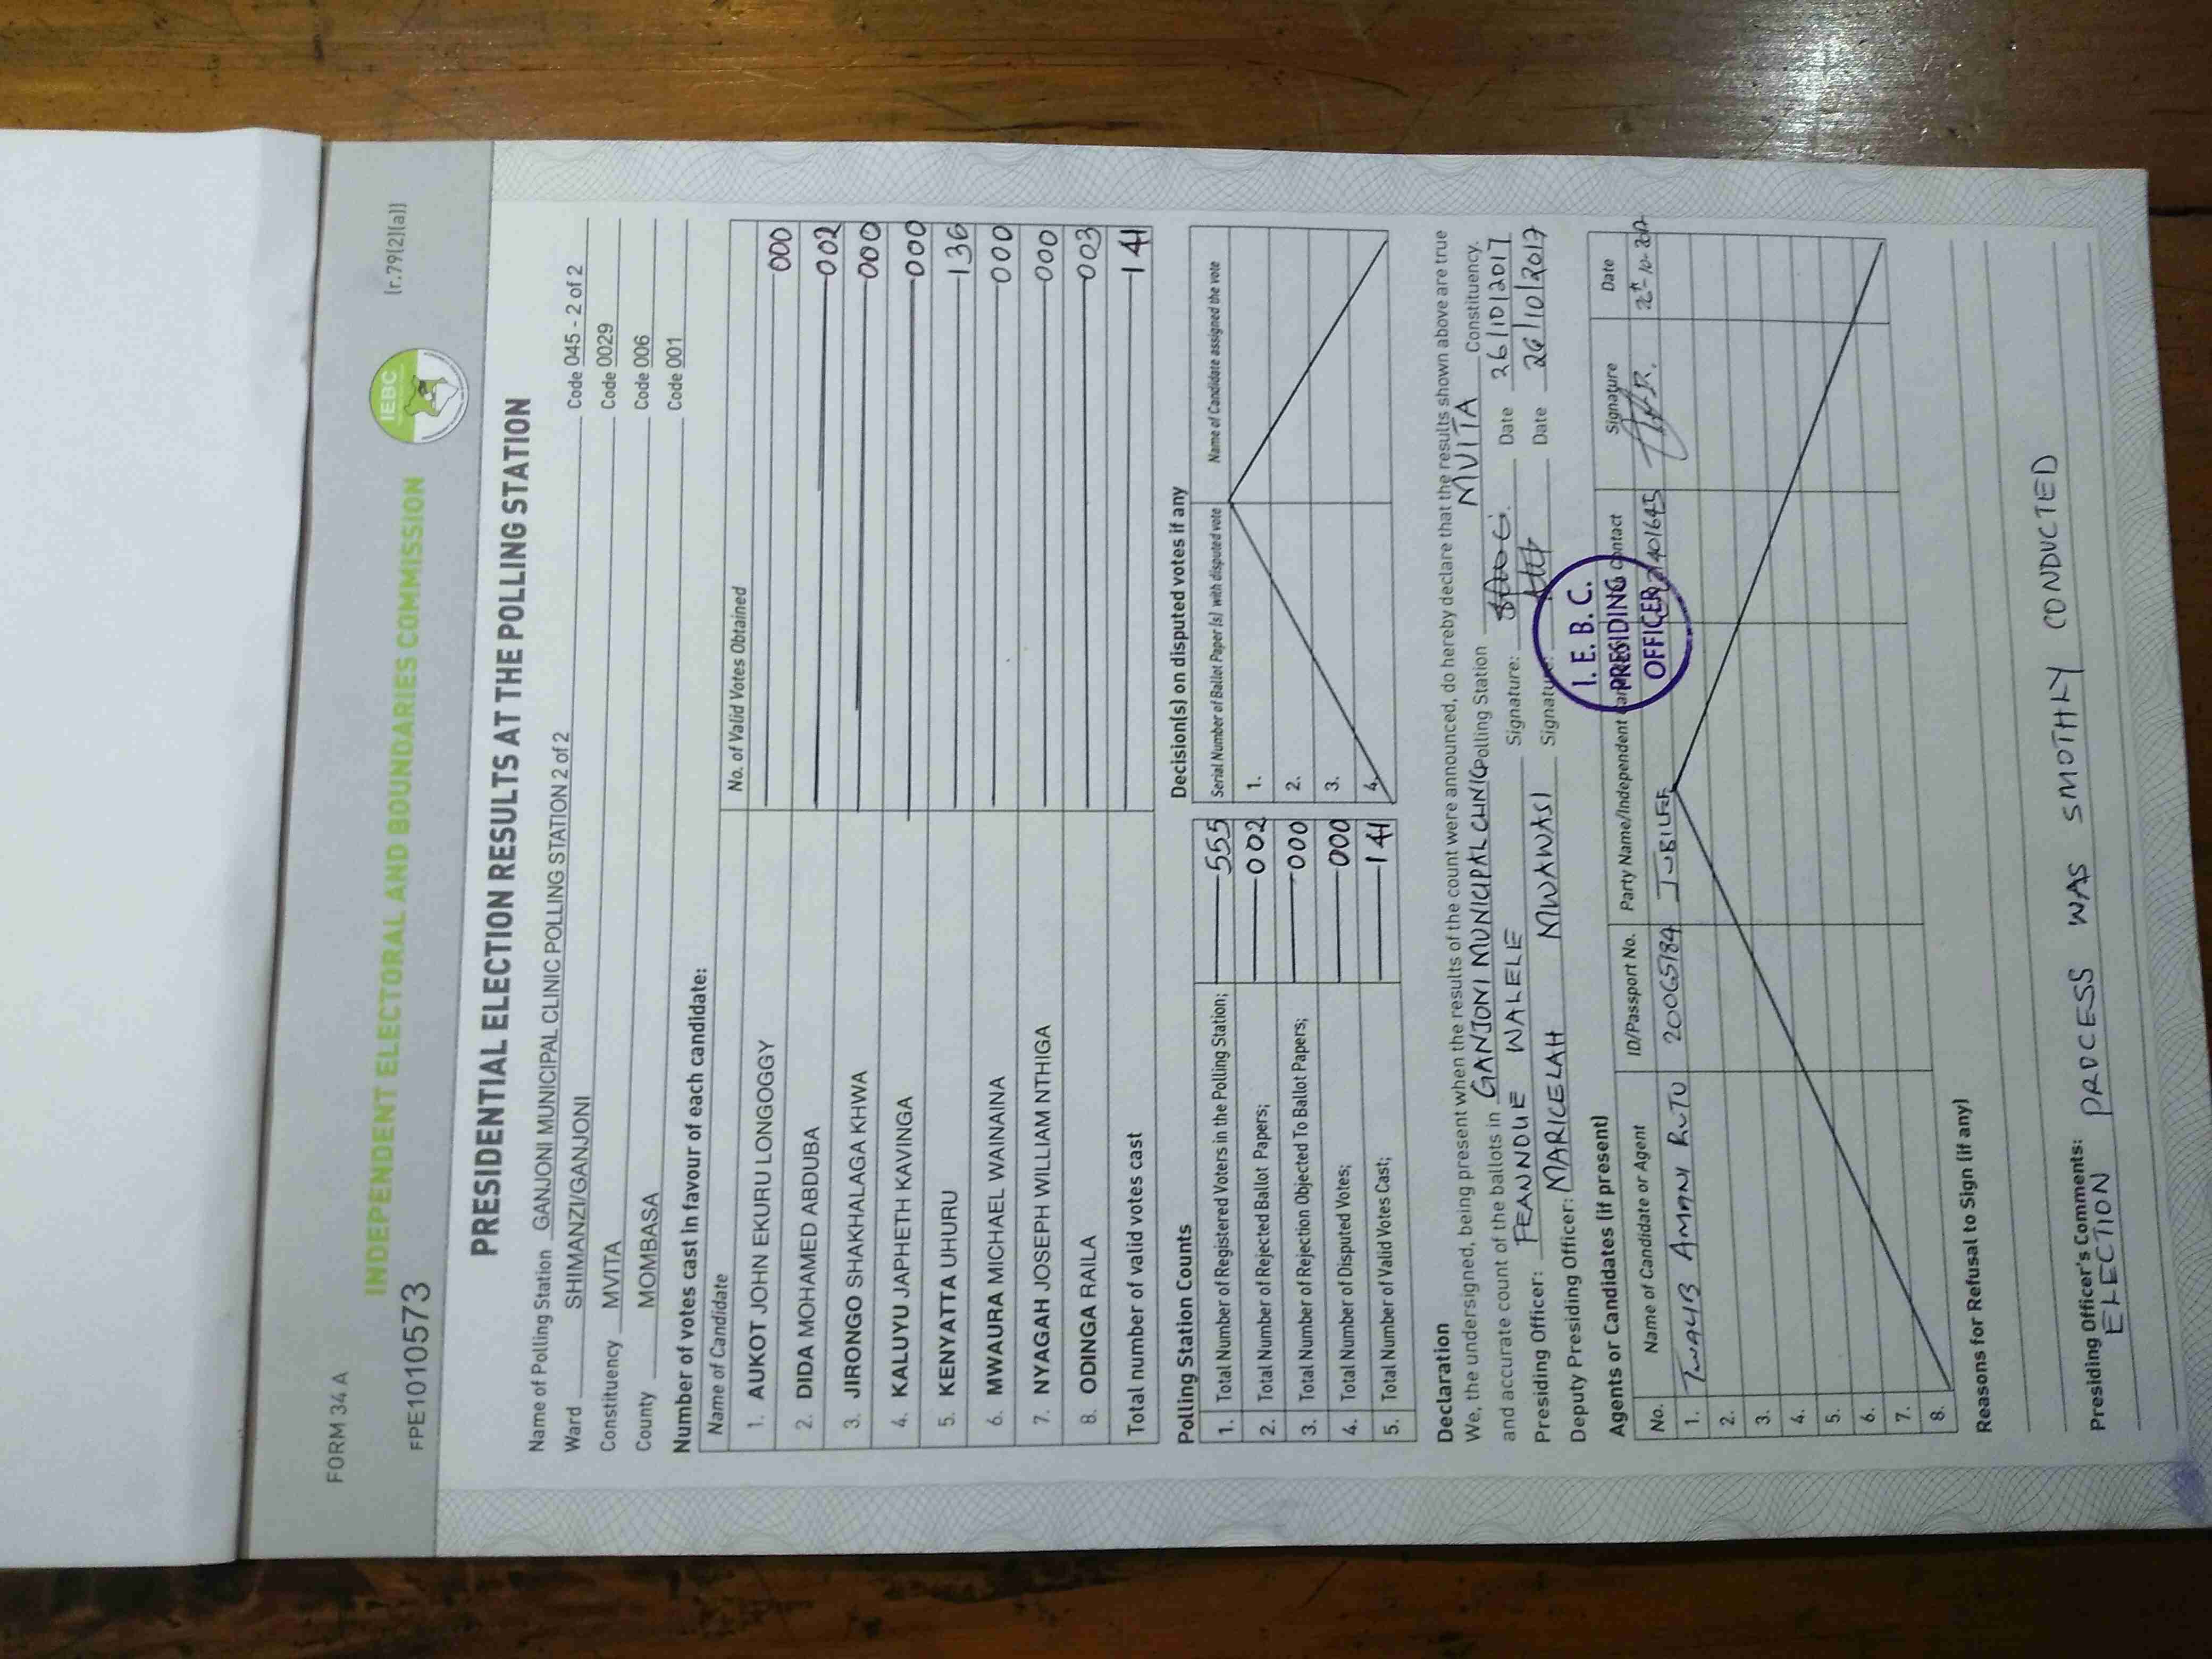 FORM 34 A
[r.79(2)(a)]
IEBC
INDEPENDENT ELECTORAL AND BOUNDARIES COMMISSION
FPE1010573
PRESIDENTIAL ELECTION RESULTS AT THE POLLING STATION
Name of Polling Station GANJONI MUNICIPAL CLINIC POLLING STATION 2 of 2 Code 045 - 2 of 2
Ward SHIMANZI/GANJONI Code 0029
Constituency MVITA Code 006
County MOMBASA Code 001
Number of votes cast in favour of each candidate:
Name of Candidate No. of Valid Votes Obtained
1. AUKOT JOHN EKURU LONGOGGY 000
2. DIDA MOHAMED ABDUBA 002
3. JIRONGO SHAKHALAGA KHWA 000
4. KALUYU JAPHETH KAVINGA 000
5. KENYATTA UHURU 136
6. MWAURA MICHAEL WAINAINA 000
7. NYAGAH JOSEPH WILLIAM NTHIGA 000
8. ODINGA RAILA 003
Total number of valid votes cast 141
Polling Station Counts
1. Total Number of Registered Voters in the Polling Station; 555
2. Total Number of Rejected Ballot Papers; 002
3. Total Number of Rejection Objected To Ballot Papers; 000
4. Total Number of Disputed Votes; 000
5. Total Number of Valid Votes Cast; 141
Decision(s) on disputed votes if any
Serial Number of Ballot Paper (s) with disputed vote Name of Candidate assigned the vote
1.
2.
3.
4.
Declaration
We, the undersigned, being present when the results of the count were announced, do hereby declare that the results shown above are true
and accurate count of the ballots in GANJONI MUNICIPAL CLINIC Polling Station MVITA Constituency.
Presiding Officer: FEANDUE WALELE Signature: Date 26/10/2017
Deputy Presiding Officer: MARICELAH MWAWASI Signature: Date 26/10/2017
I. E. B. C.
PRESIDING
OFFICER
Agents or Candidates (if present)
No. Name of Candidate or Agent ID/Passport No. Party Name/Independent contact Signature Date
1. AMANI RUTO 20065184 JUBILEE
2.
3.
4.
5.
6.
7.
8.
Reasons for Refusal to Sign (if any)
Presiding Officer's Comments: PROCESS WAS SMOTHLY CONDUCTED
ELECTION